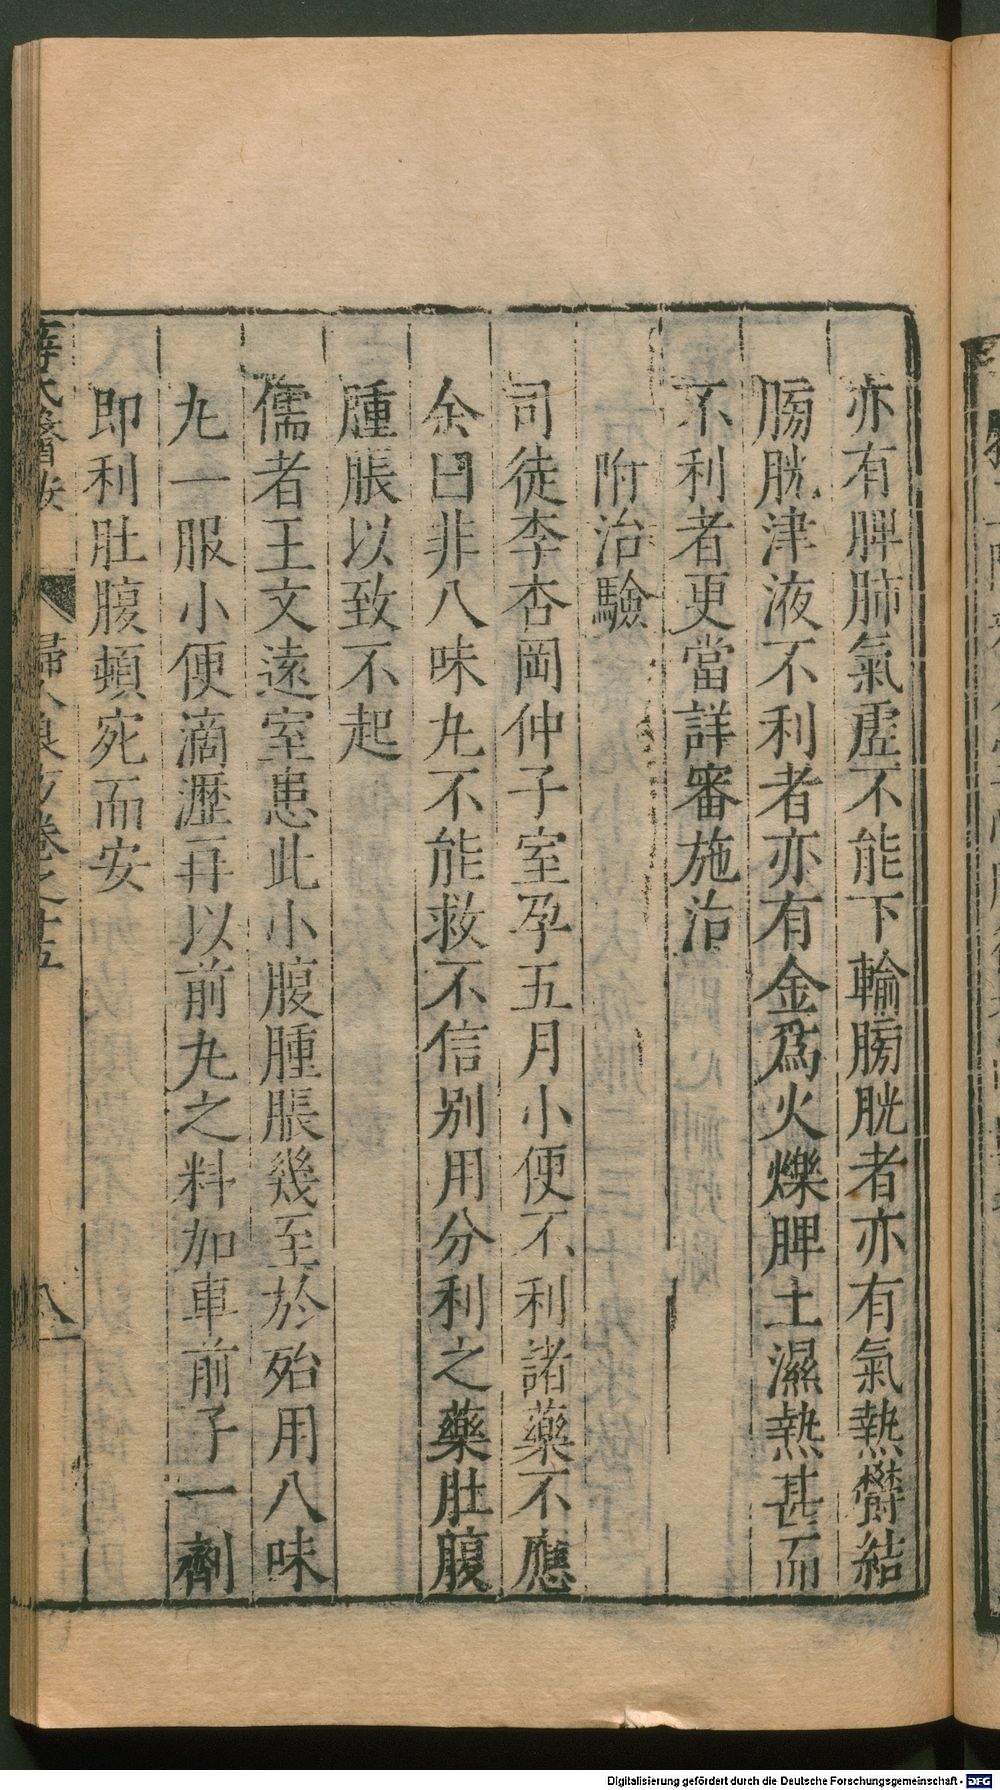 亦有脾肺氣虛不能下輸膀胱者亦有氣熱鬱結
膀胱津液不利者亦有金爲火爍脾土濕熱甚而
不利者更當詳審施治
附治驗
司徒李杏岡仲子室孕五月小便不利諸藥不應
余曰非八味丸不能救不信别用分利之藥肚腹
腫脹以致不起
儒者王文遠室患此小腹腫脹幾至於殆用八味
丸一服小便滴瀝再以前丸之料加車前子一劑
即利肚腹頓宽而安
薛氏醫按 婦人良方卷之十五 八
Digitalisierung gefördert durch die Deutsche Forschungsgemeinschaft - DFG